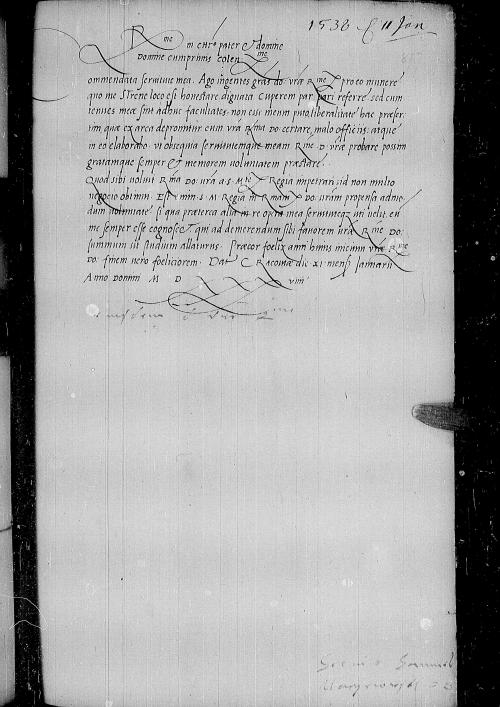 1538 11 Jan
Rme in Chro pater et domine
domine cumprimis colenme
ommendata servitute mea. Ago ingentes gras do: vrã Rme pro eo munere
quo me strene loco est honestare dignata Cuperem par pari referre sed cum
tenues meæ sint adhuc facultates. non est meum puto liberalitate hac præser.
tim quæ ex arca depromitur cum vrã Rma do: certare, malo officiis, atque
in eo elaborabo: vt obsequia servitutemque meam Rme D: vræ probare possim
gratamque semper et memorem voluntatem præstare.
Quod sibi voluit Rma Do: vrã a. S. Mte Regia impetrari: id non multo
negocio obtinui. Est enim S. M Regia in Rmam Do. vrãm propensa admo⸗
dum voluntate si qua præterea alia in re opera mea servitutesque uti velit, eũ
me semper esse cognoscet qui ad demerendum sibi favorem vræ Rme Do:
summum sit studium allaturus. Præcor foelix anni huius inicium vræ Rme
Do: finem vero foeliciorem. Dat Cracoviæ die xi mensis Januarii
Anno domini M D XXX viii